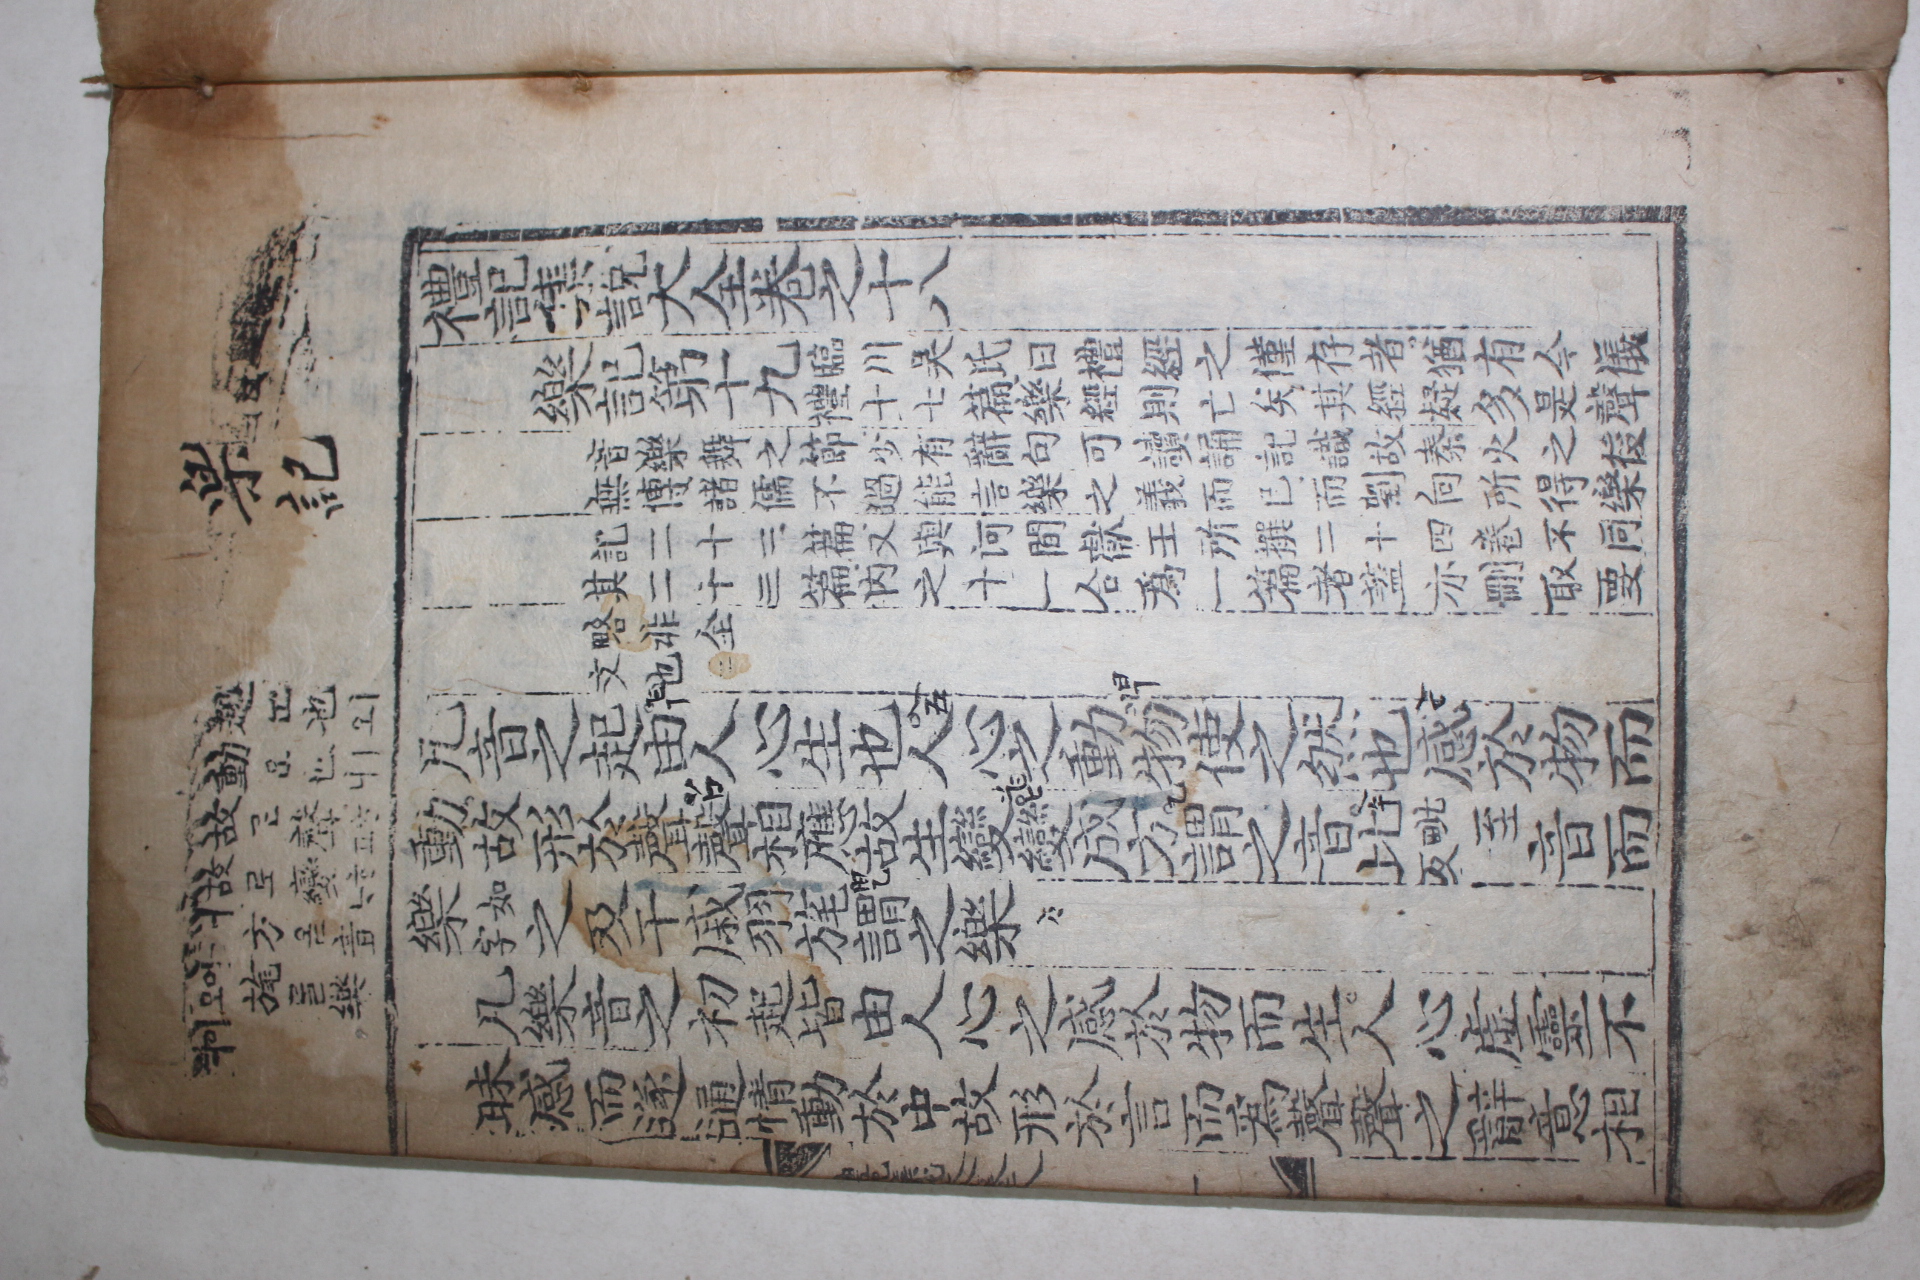 樂記
起는也ㅣ
動은ㄴㅣ
故로聲
故로變
方음音
旄를樂
禮記集說大全卷之十八
樂記第十九
臨川吳氏曰禮經之僅存者猶有今儀
禮十七篇樂經則亡矣其經疑多是聲
音樂舞之節少有辭句可讀誦記識故秦火之後
無傳諸儒不過能言樂之義而已而劉向所得樂
記二十三篇又與河間獻王所撰二十四卷不同
其二十三篇內之十一合爲一篇者蓋亦刪取要
略非全
文也
凡音之起由人心生也人心之動物使之然也感於物而
動故形於聲聲相應故生變變成方謂之音比毗至反音而
樂如字之及干戚羽旄謂之樂
凡樂音之初起皆由人心之感於物而生人心虛靈不
昧感而遂通情動於中故形於言而爲聲聲之辭意相